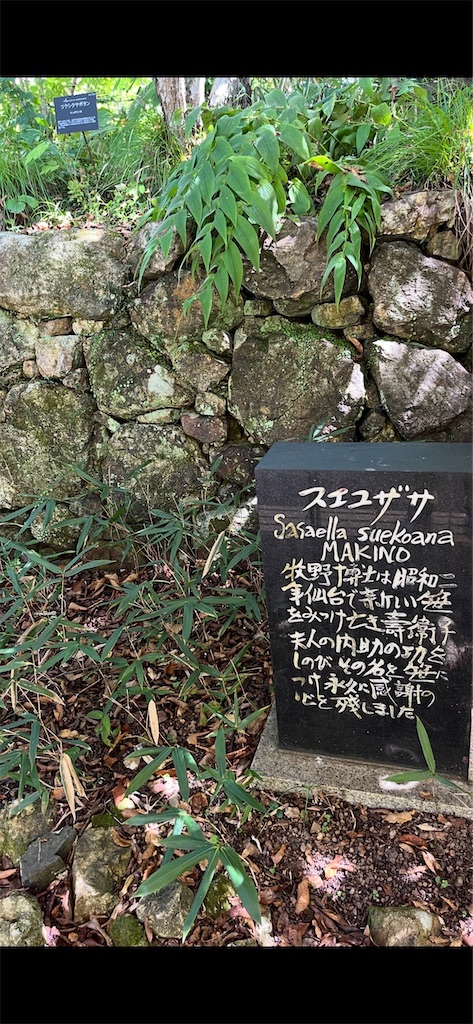 ツクシクサボタン
スエコザサ
Sasaella suekoana
MAKINO
牧野博士は昭和二
年仙台で新しい笹
をみつけたとき壽衛子
夫人の内助の功を
しのびその名を笹に
つけ永久に感謝の
心を残しました